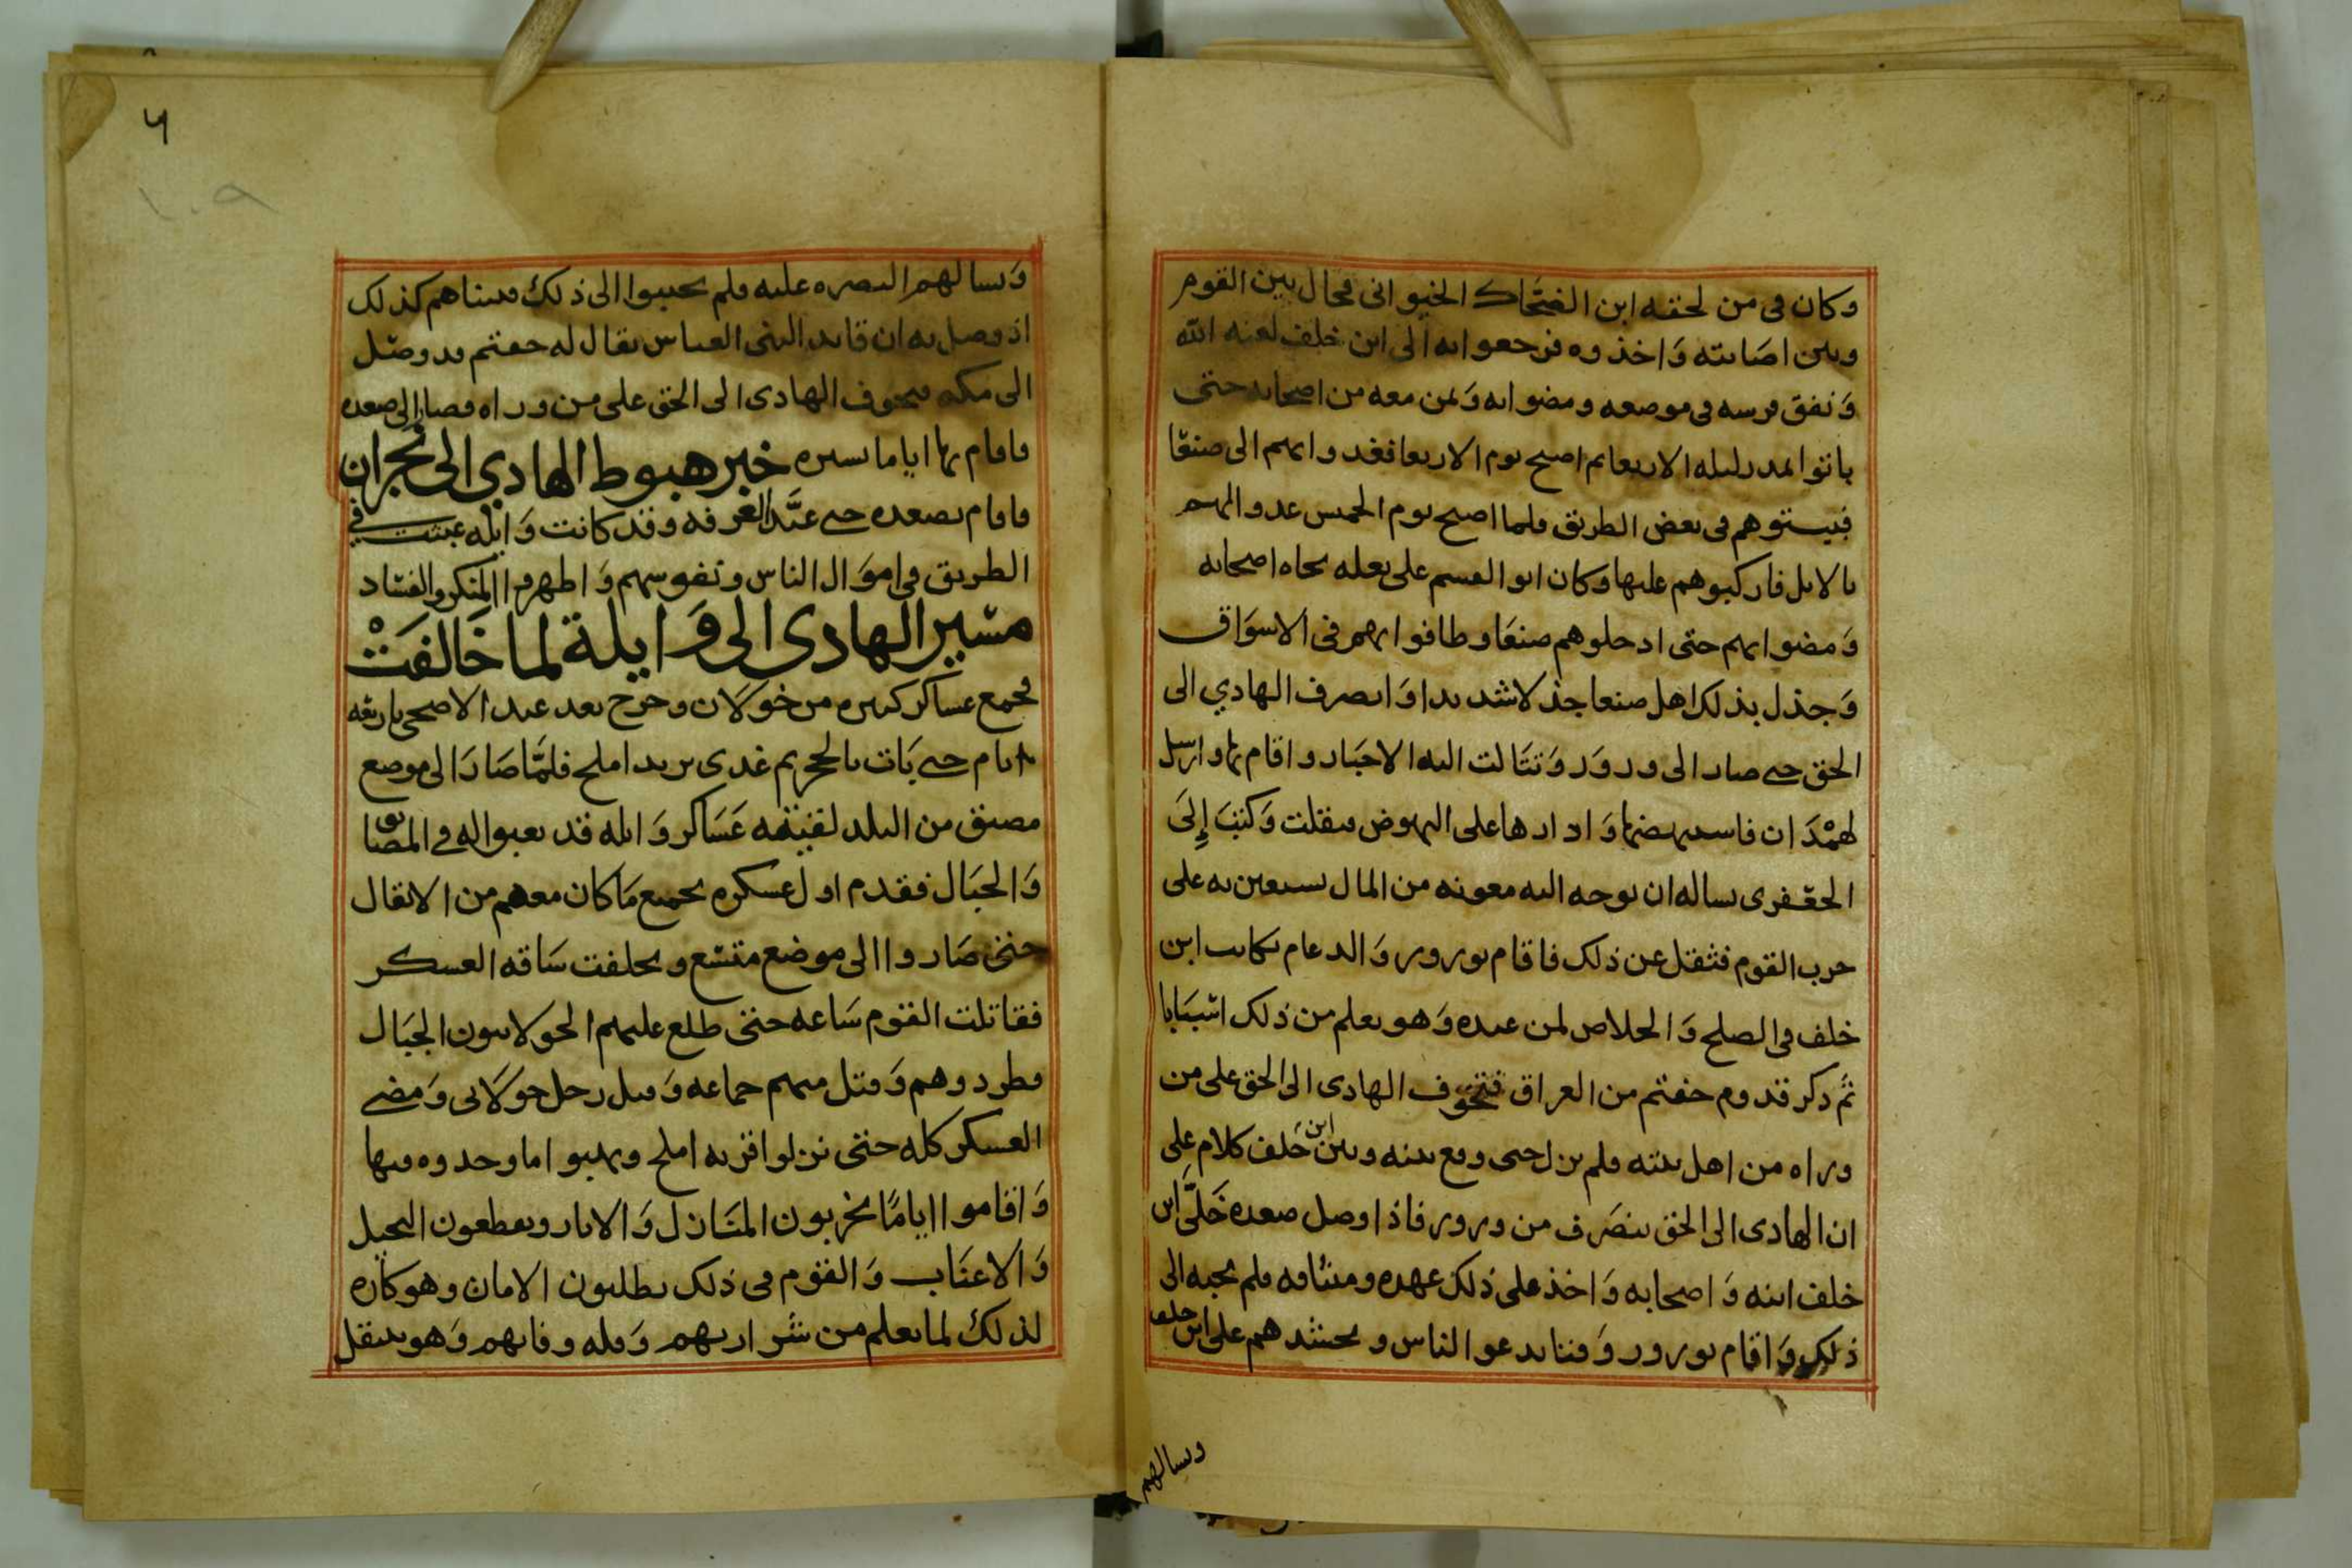 وكان في من لحقه ابن الضحاك الخيواني فحال بين القوم
وبين اصابته واخذوه فرجعوا به الى ابن خلف لعنه الله
ونفق فرسه في موضعه ومضوا به وبمن معه من اصحابه حتى
باتوا ليله الاربعا ثم اصبح يوم الاربعا فغدوا بهم الى صنعا
فبيتوهم في بعض الطريق فلما اصبح يوم الخميس غدوا اليهم
بالابل فاركبوهم عليها وكان ابو القسم على بغله تجاه اصحابه
ومضوا بهم حتى ادخلوهم صنعا وطافوا بهم في الاسواق
وجذل بذلك اهل صنعا جذلا شديدا وانصرف الهادي الى
الحق حتى صار الى ورور وتتالت اليه الاخبار واقام بها وارسل
لهمدان فاستنهضها وادارها على النهوض فثقلت وكتب إلى
الجعفري يساله ان يوجه اليه معونه من المال يستعين به على
حرب القوم فثقل عن ذلك فاقام بورور والدعام يكاتب ابن
خلف في الصلح والخلاص لمن عنده وهو يعلم من ذلك اسبابا
ثم ذكر قدوم جفتم من العراق فتخوف الهادى الى الحق على من
وراه من اهل بيته فلم يزل حتى وقع بينه وبين ابن خلف كلام على
ان الهادى الى الحق ينصرف من ورور فاذا وصل صعده خلى ابن
خلف ابنه واصحابه واخذ على ذلك عهده وميثاقه فلم يجبه الى
ذلك واقام بورور وقتا يدعو الناس ويحشدهم على ابن خلف
ويسالهم
٦
١٠٩
ويسالهم النصره عليه فلم يجيبوا الى ذلك فبيناهم كذلك
اذ وصل به ان قايد البني العباس يقال له جفتم قد وصل
الى مكه فتخوف الهادى الى الحق على من وراه فصار الى صعده
فاقام بها اياما يسيره خبر هبوط الهادي الى نجران
فاقام بصعده حتى عيد الغرفه وقد كانت وايله عبثت في
الطريق في اموال الناس ونفوسهم واظهروا المنكر والفساد
مسير الهادى الى وايلة لما خالفت
فجمع عساكر كبيره من خولان وخرج بعد عيد الاضحى باربعه
ايام حتى بات ثم غدى يريد املح فلما صار الى موضع
مضيق من البلد لقيته عساكر وايله قد تعبوا له في المضايق
والجبال فقدم اول عسكره بجميع ما كان معهم من الاثقال
حتى صاروا الى موضع متسع وتخلفت ساقه العسكر
فقاتلت القوم ساعه حتى طلع عليهم الخولانيون الجبال
فطردوهم وقتل منهم جماعه وقتل رجل خولاني ومضى
العسكر كله حتى نزلوا قريه املح وينهبوا ما وجدوه فيها
واقاموا اياما يخربون المنازل والابار ويقطعون النخيل
والاعناب والقوم في ذلك يطلبون الامان وهو كاره
لذلك لما يعلم من شرارتهم وقله وفايهم وهو ينتقل